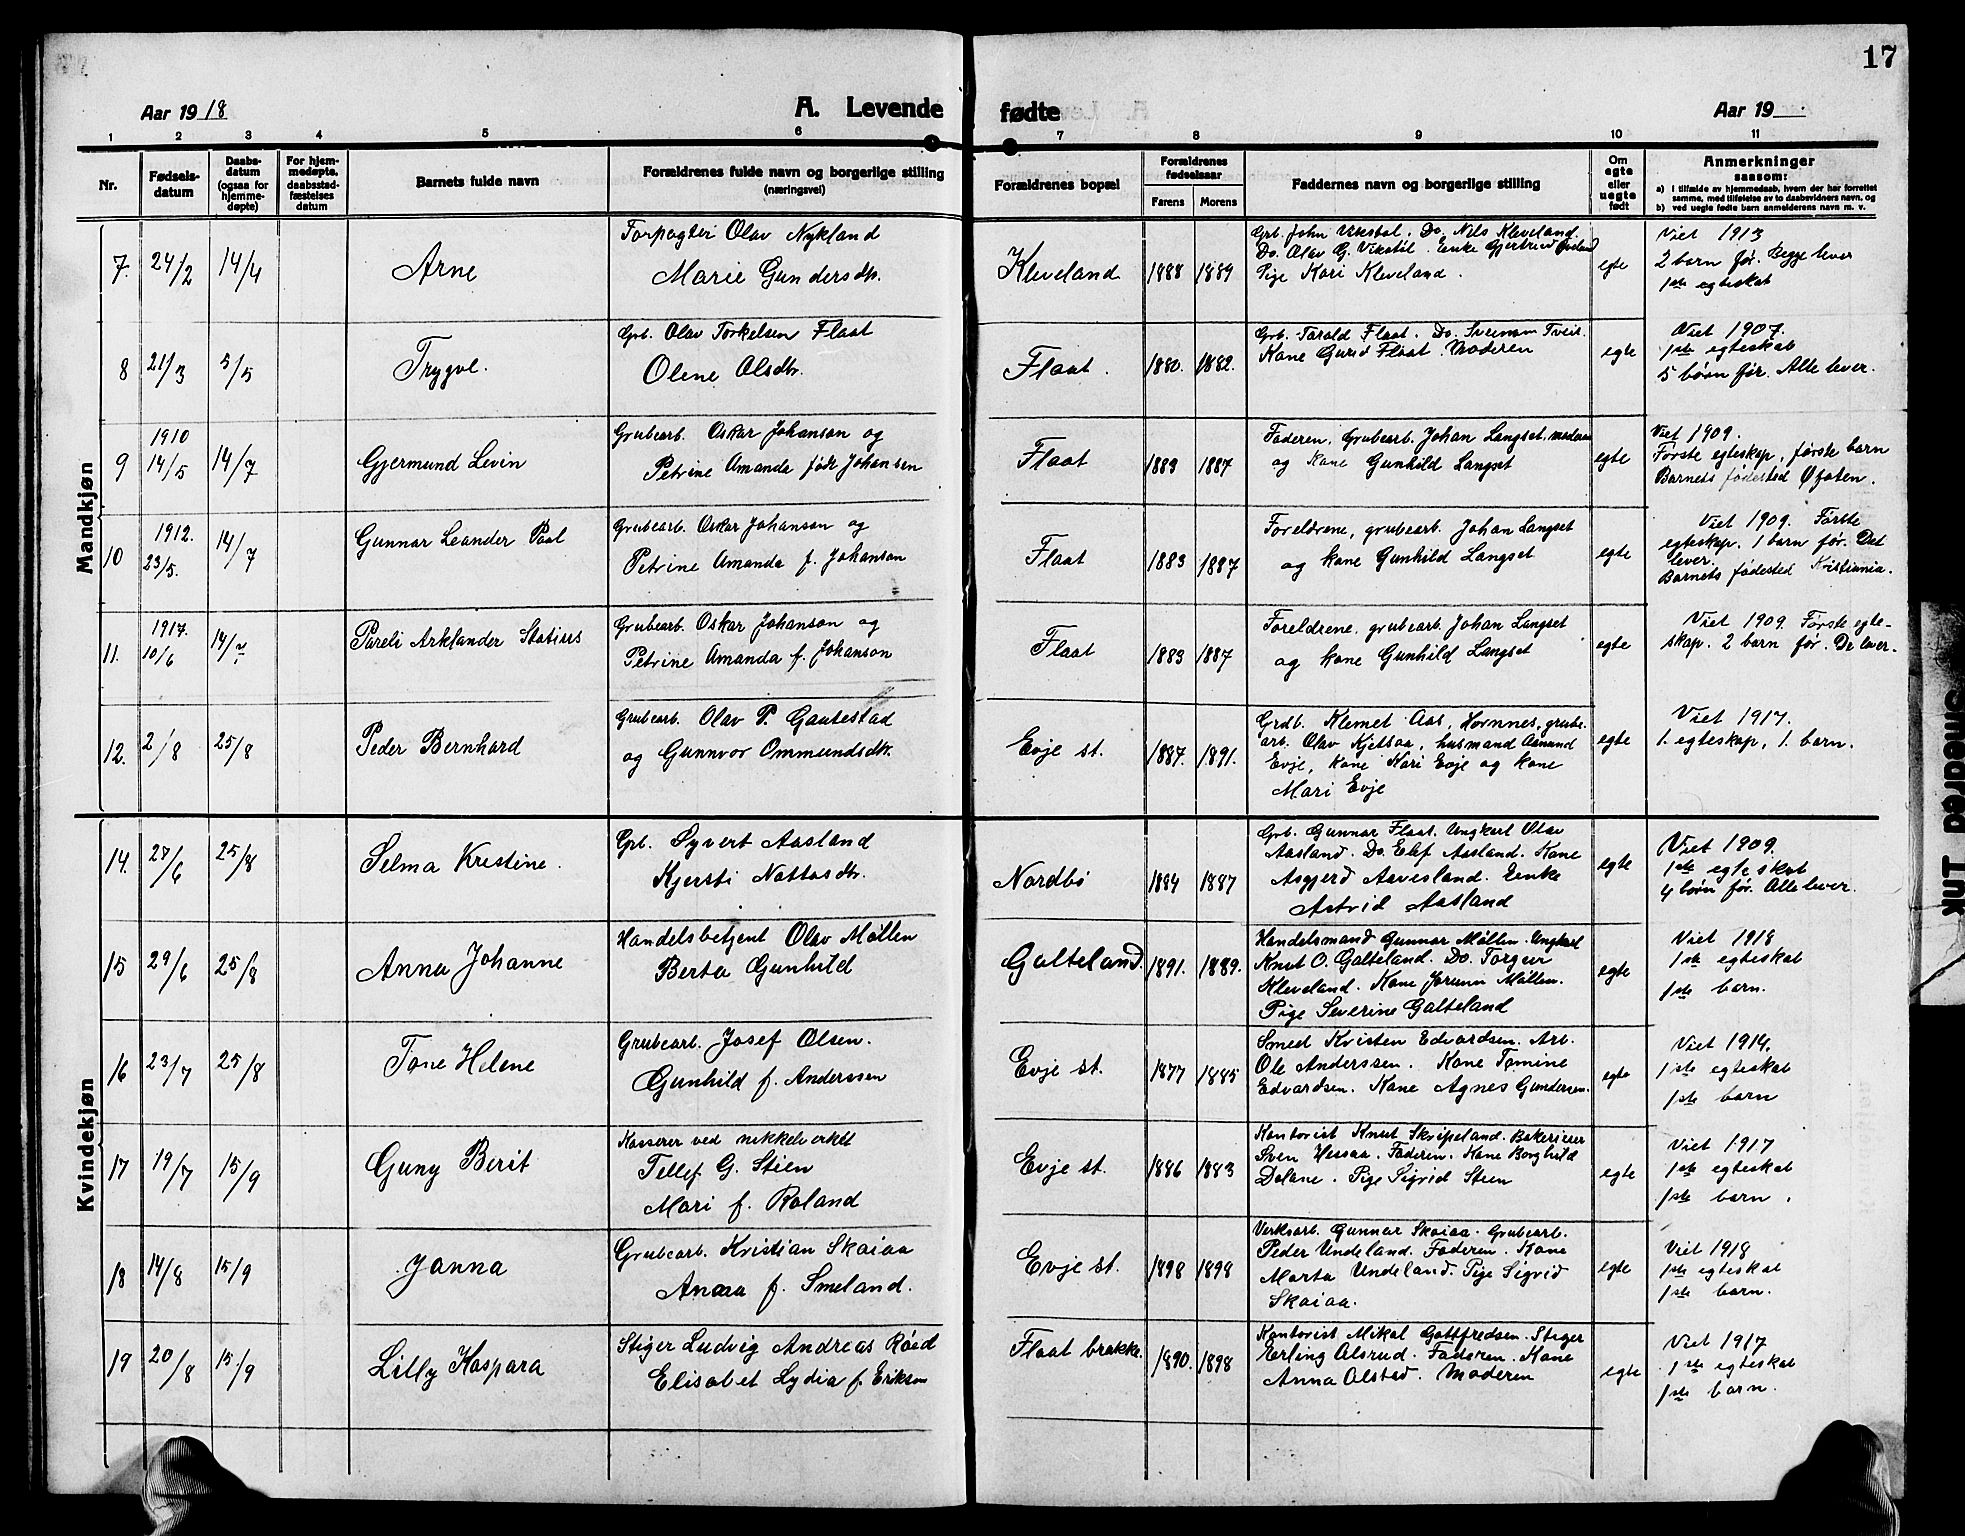 17
Aar 1918
A. Levende
fødte
Aar 19
1 2 3 4 5 6 7 8 9 10 11
Nr.
Fødsels-
datum
Daabs-
datum
(ogsaa for
hjemme-
døpte)
For hjem-
medøpte,
daabsstad-
fæstelses
datum
Barnets fulde navn
Forældrenes fulde navn og borgerlige stilling
(næringsvei)
Forældrenes bopæl
Forældrenes
fødselsaar
Farens Morens
Faddernes navn og borgerlige stilling
Om
egte
eller
uegte
født
Anmerkninger
saasom:
a) I tilfælde av hjemmedaab, hvem der har forrettet
samme, med tilføielse av to daabsvidners navn, og
b) ved uegte fødte barn anmelderens navn m. v.
Mandkjøn
7. 24/2 14/4
Arne
Forpagter Olav Nykland
Marie Gundersdtr.
Kleveland
1888 1889
Grb. John Vikstøl. Do. Nils Kleveland.
Do. Olav G. Vikstøl. Enke Gjertrud
Pige Kari Kleveland.
egte
Viet 1913
2 barn før. Begge lever
1ste egteskab
8 21/3 5/5
Trygve.
Grb. Olav Torkelsen Flaat
Olene Olsdtr.
Flaat.
1880. 1882.
Grb. Tarald Flaat. Do. Sveinung Tveit.
Kone Gurid Flaat. Moderen
egte
Viet 1907.
1ste egteskab
5 børn før. Alle lever.
9 1910 14/5 14/7
Gjermund Levin
Grubearb. Oskar Johanson og
Petrine Amanda født Johansen
Flaat
1883 1887
Faderen, Grubearb. Johan Langset, moderen
og kone Gunhild Langset
egte
Viet 1909.
Første egteskap, første barn
Barnets fødested Ofoten.
10 1912. 23/5. 14/7
Gunnar Leander Paal
Grubearb. Oskar Johanson og
Petrine Amanda f. Johanson
Flaat
1883 1887
Foreldrene, grubearb. Johan Langset
og kone Gunhild Langset
egte
Viet 1909. Første
egteskap. 1 barn før. Det
lever.
Barnets fødested Kristiania.
11. 1917. 10/6 14/7
Pareli Arklander Statius
Grubearb. Oskar Johanson og
Petrine Amanda f. Johanson
Flaat
1883 1887
Foreldrene, grubearb. Johan Langset
og kone Gunhild Langset
egte
Viet 1909. Første egte-
skap. 2 barn før. De lever.
12. 2/8 25/8
Peder Bernhard
Grubearb. Olav P. Gautestad
og Gunnvor Ommundsdtr.
Evje st.
1887. 1891.
Grdb. Klemet Aas, Hornnes, grube-
arb. Olav Kjetsaa, husmand Aamund
Evje, kone Kari Evje og kone
Mari Evje
egte
Viet 1917.
1. egteskap, 1. barn.
Kvindekjøn
14. 27/6 25/8
Selma Kristine.
Grb. Syvert Aasland
Kjersti Nottosdtr.
Nordbø
1884 1887
Grb. Gunnar Flaat. Ungkarl Olav
Aasland. Do. Elef Aasland. Kone
Asgjerd Aavesland. Enke
Astrid Aasland
egte
Viet 1909.
1ste egteskab
4 børn før. Alle lever.
15 29/6 25/8
Anna Johanne
Handelsbetjent Olav Møllen
Berta Gunhild
Galteland.
1891. 1889.
Handelsmand Gunnar Møllen. Ungkarl
Knut O. Galteland. Do. Torgeir
Kleveland. Kone Jorunn Møllen.
Pige Severine Galteland
egte
Viet 1918
1ste egteskab
1ste barn.
16 23/7 25/8
Tone Helene
Grubearb. Josef Olsen.
Gunhild f. Anderssen
Evje st.
1877 1885
Smed Kristen Edvardsen. Arb.
Ole Anderssen. Kone Tomine
Edvardsen. Kone Agnes Gundersen.
egte
Viet 1914.
1ste egteskab
1ste barn
17 19/7 15/9
Guny Berit
Kasserer ved nikkelverket
Tellef G. Stien
Mari f. Roland
Evje st.
1886 1883
Kontorist Knut Skripeland. Bakerieier
Sven Hessaa. Faderen. Kone Borghild
Dolane. Pige Sigrid Steen
egte
Viet 1917
1ste egteskab
1ste barn.
18 14/8 15/9
Janna
Grubearb. Kristian Skaiaa
Anna f. Smeland.
Evje st.
1898 1898
Verksarb. Gunnar Skaiaa. Grubearb.
Peder Undeland. Faderen. Kone
Marta Undeland. Pige Sigrid
Skaiaa.
egte
Viet 1918
1ste egteskab
1ste barn.
19 20/8 15/9
Lilly Kaspara
Stiger Ludvig Andreas Røed
Elisabet Lydia f. Erikson
Flaat brakke.
1890. 1898
Kontorist Mikal Gottfredsen. Stiger
Erling Alsrud. Faderen. Kone
Anna Alstad. Moderen
egte
Viet 1917
1ste egteskab
1ste barn.